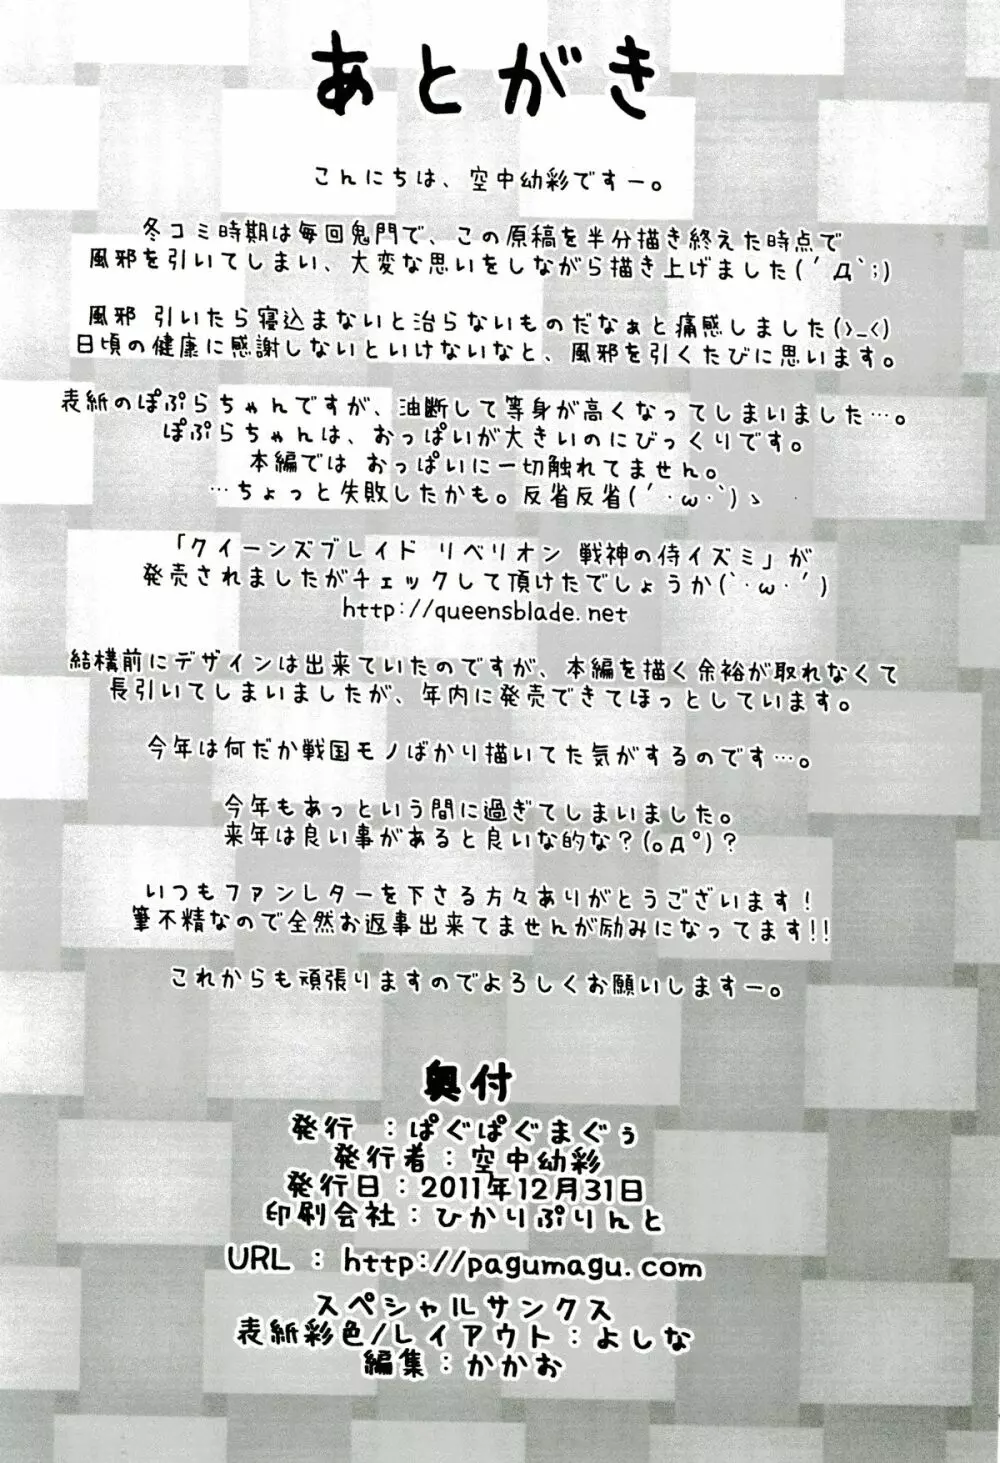 あとがき
こんにちは、空中幼彩ですー。
冬コミ時期は毎回鬼門で、この原稿を半分描き終えた時点で
風邪を引いてしまい、大変な思いをしながら描き上げました(´Д`;)
風邪 引いたら寝込まないと治らないものだなぁと痛感しました(>_<)
日頃の健康に感謝しないといけないなと、風邪を引くたびに思います。
表紙のぽぷらちゃんですが、油断して等身が高くなってしまいました…。
ぽぷらちゃんは、おっぱいが大きいのにびっくりです。
本編では おっぱいに一切触れてません。
…ちょっと失敗したかも。反省反省(´･ω･`)ゝ
「クイーンズブレイド リベリオン 戦神の侍イズミ」が
発売されましたがチェックして頂けたでしょうか(`･ω･´)
http://queensblade.net
結構前にデザインは出来ていたのですが、本編を描く余裕が取れなくて
長引いてしまいましたが、年内に発売できてほっとしています。
今年は何だか戦国モノばかり描いてた気がするのです…。
今年もあっという間に過ぎてしまいました。
来年は良い事があると良いな的な?(｡Д°)?
いつもファンレターを下さる方々ありがとうございます!
筆不精なので全然お返事出来てませんが励みになってます!!
これからも頑張りますのでよろしくお願いしますー。
奥付
発行 :ぱぐぱぐまぐぅ
発行者:空中幼彩
発行日:2011年12月31日
印刷会社:ひかりぷりんと
URL : http://pagumagu.com
スペシャルサンクス
表紙彩色/レイアウト:よしな
編集:かかお